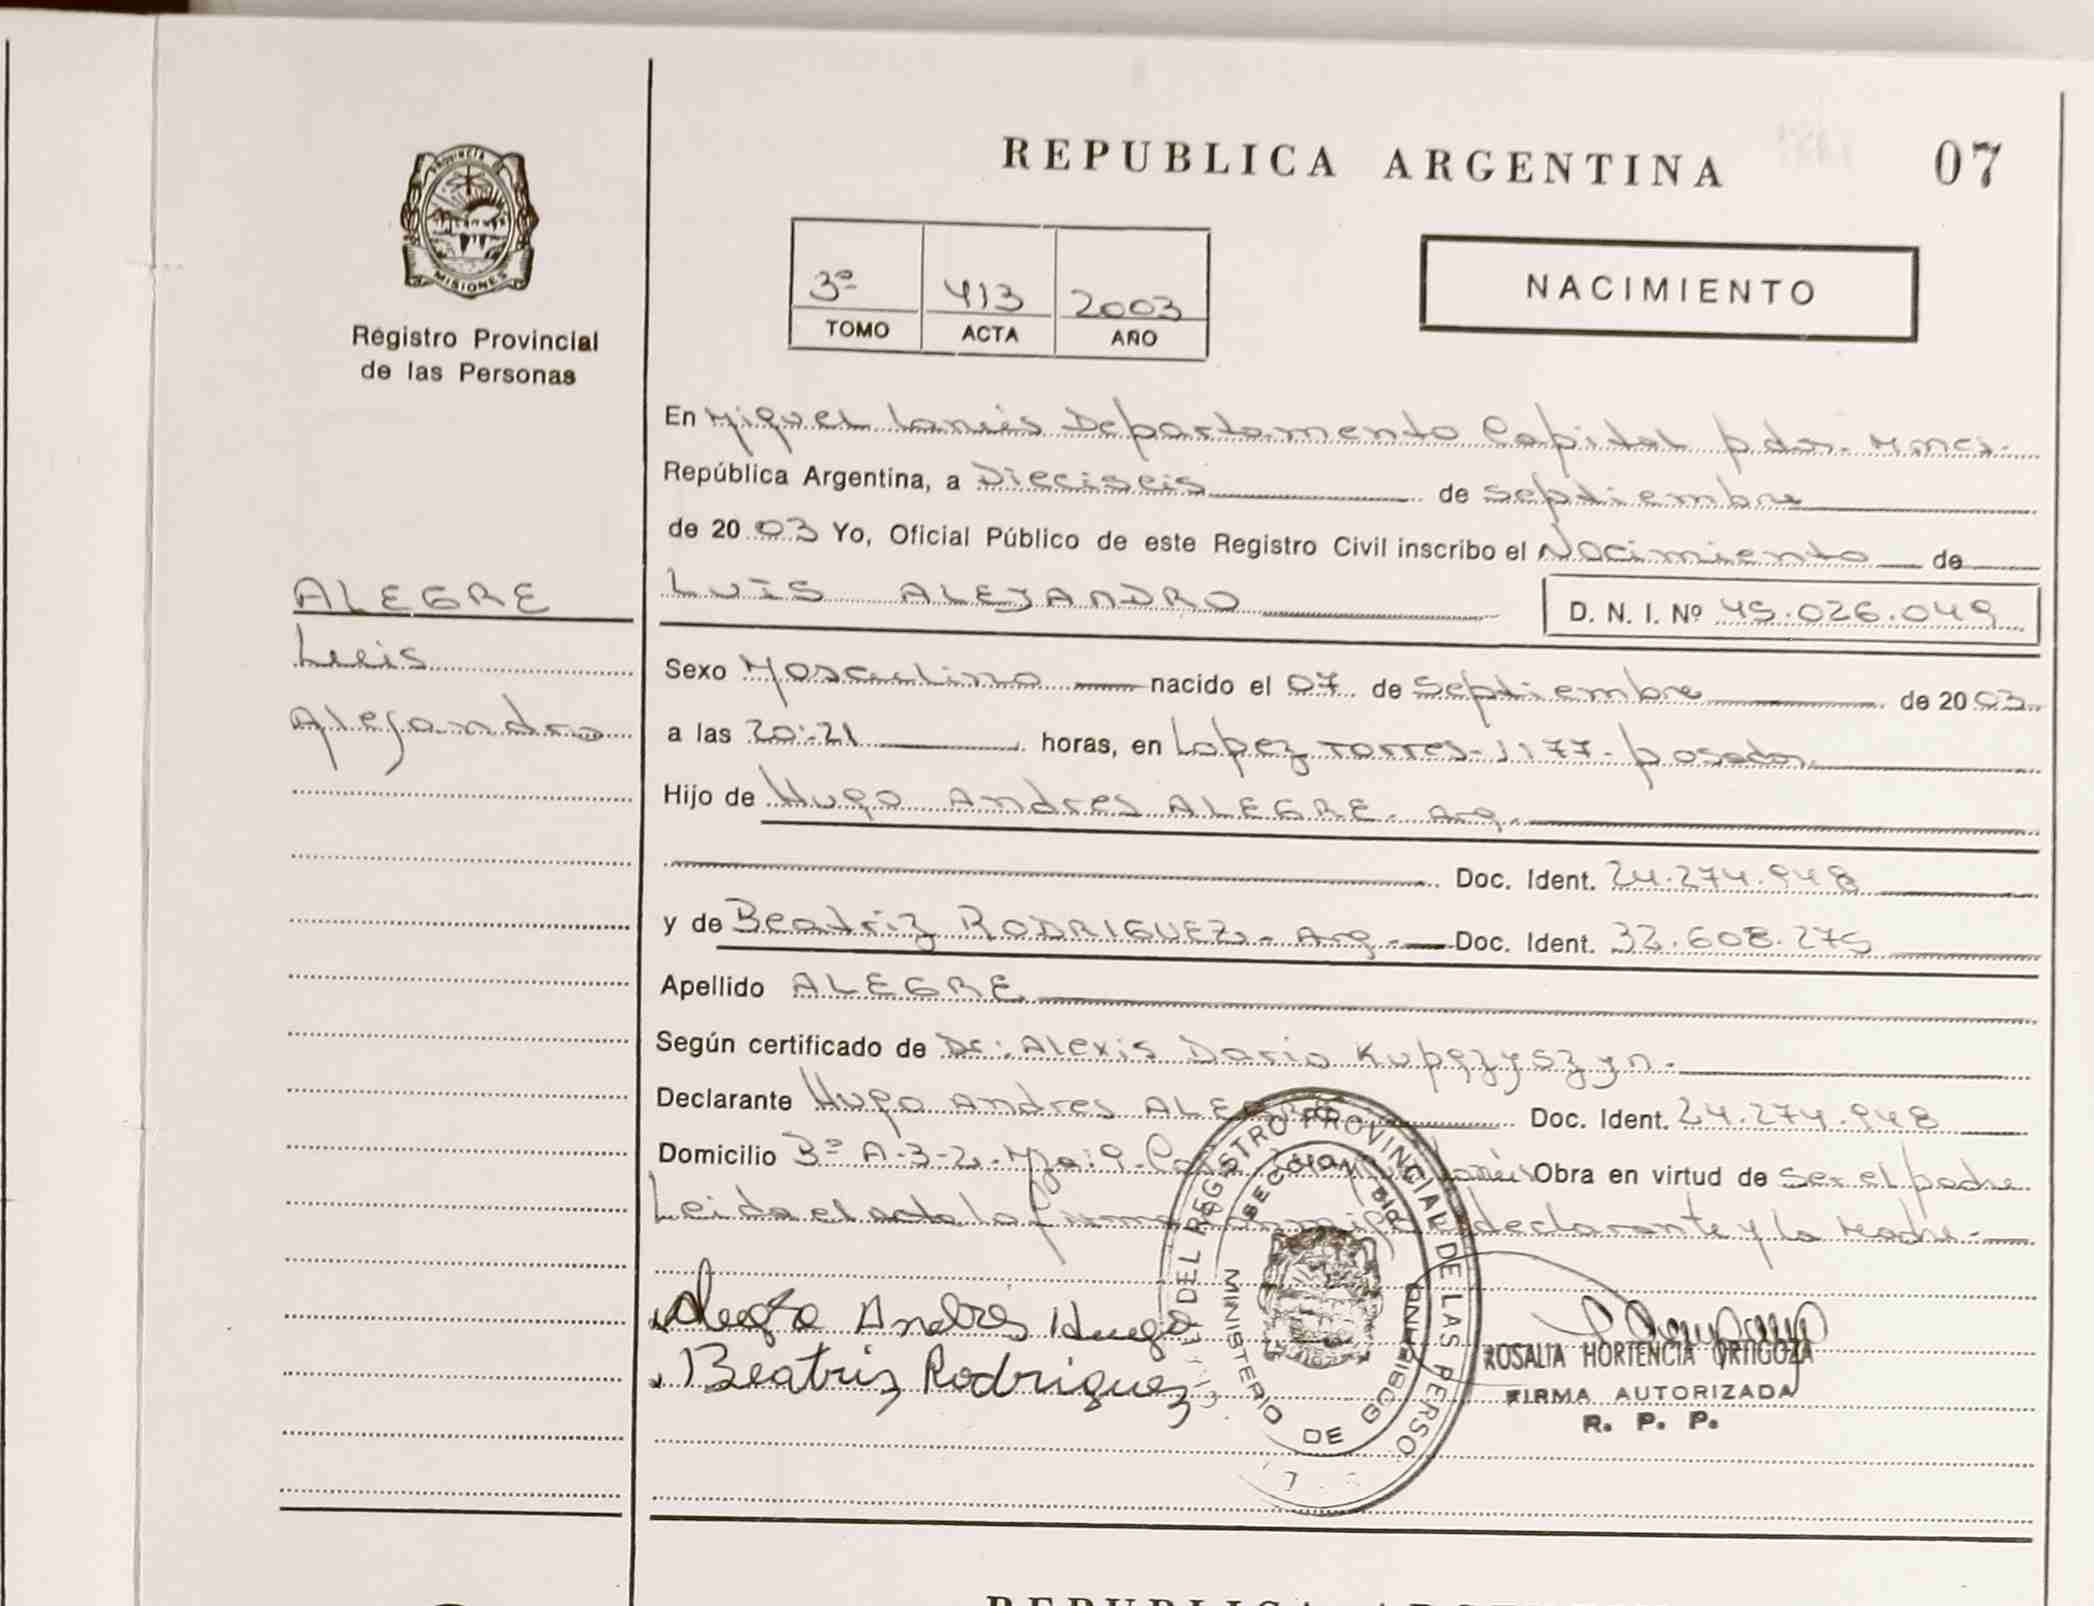 REPUBLICA ARGENTINA 07
PROVINCIA DE
MISIONES
Registro Provincial
de las Personas
3ª 413 2003
TOMO ACTA AÑO
NACIMIENTO
En Miguel Lanús Departamento Capital pdas. Mnes.
República Argentina, a Dieciseis de septiembre
de 2003 Yo, Oficial Público de este Registro Civil inscribo el Nacimiento de
ALEGRE
Luis
Alejandro
LUIS ALEJANDRO D. N. I. Nº 45.026.049
Sexo Masculino nacido el 07 de septiembre de 2003
a las 20:21 horas, en Lopez Torres-1177-posadas
Hijo de Hugo Andres ALEGRE. Arg.
Doc. Ident. 24.274.948
y de Beatriz RODRIGUEZ.- Arg.- Doc. Ident. 32.608.275
Apellido ALEGRE
Según certificado de Dr: Alexis Dario
Declarante Hugo Andres ALEGRE Doc. Ident. 24.274.948
Domicilio Bº A-3-2- Mza: 9- Lanús Obra en virtud de ser el padre
Leida el acta la firma declarante y la Madre.-
Andres Hugo
Beatriz Rodriguez
DEL REGISTRO PROVINCIAL DE LAS PERSO
MINISTERIO DE GOBIERNO
ROSALIA HORTENCIA ORTIGOZA
FIRMA AUTORIZADA
R. P. P.